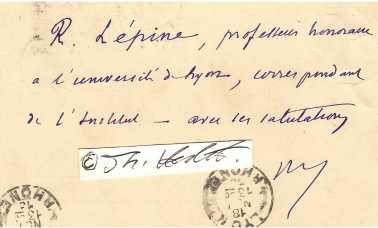 R. Lépine, professeur honoraire
a l'université de Lyon, correspondant
de l'Institut — avec ses salutations
©
RHONE
LYON
RHONE